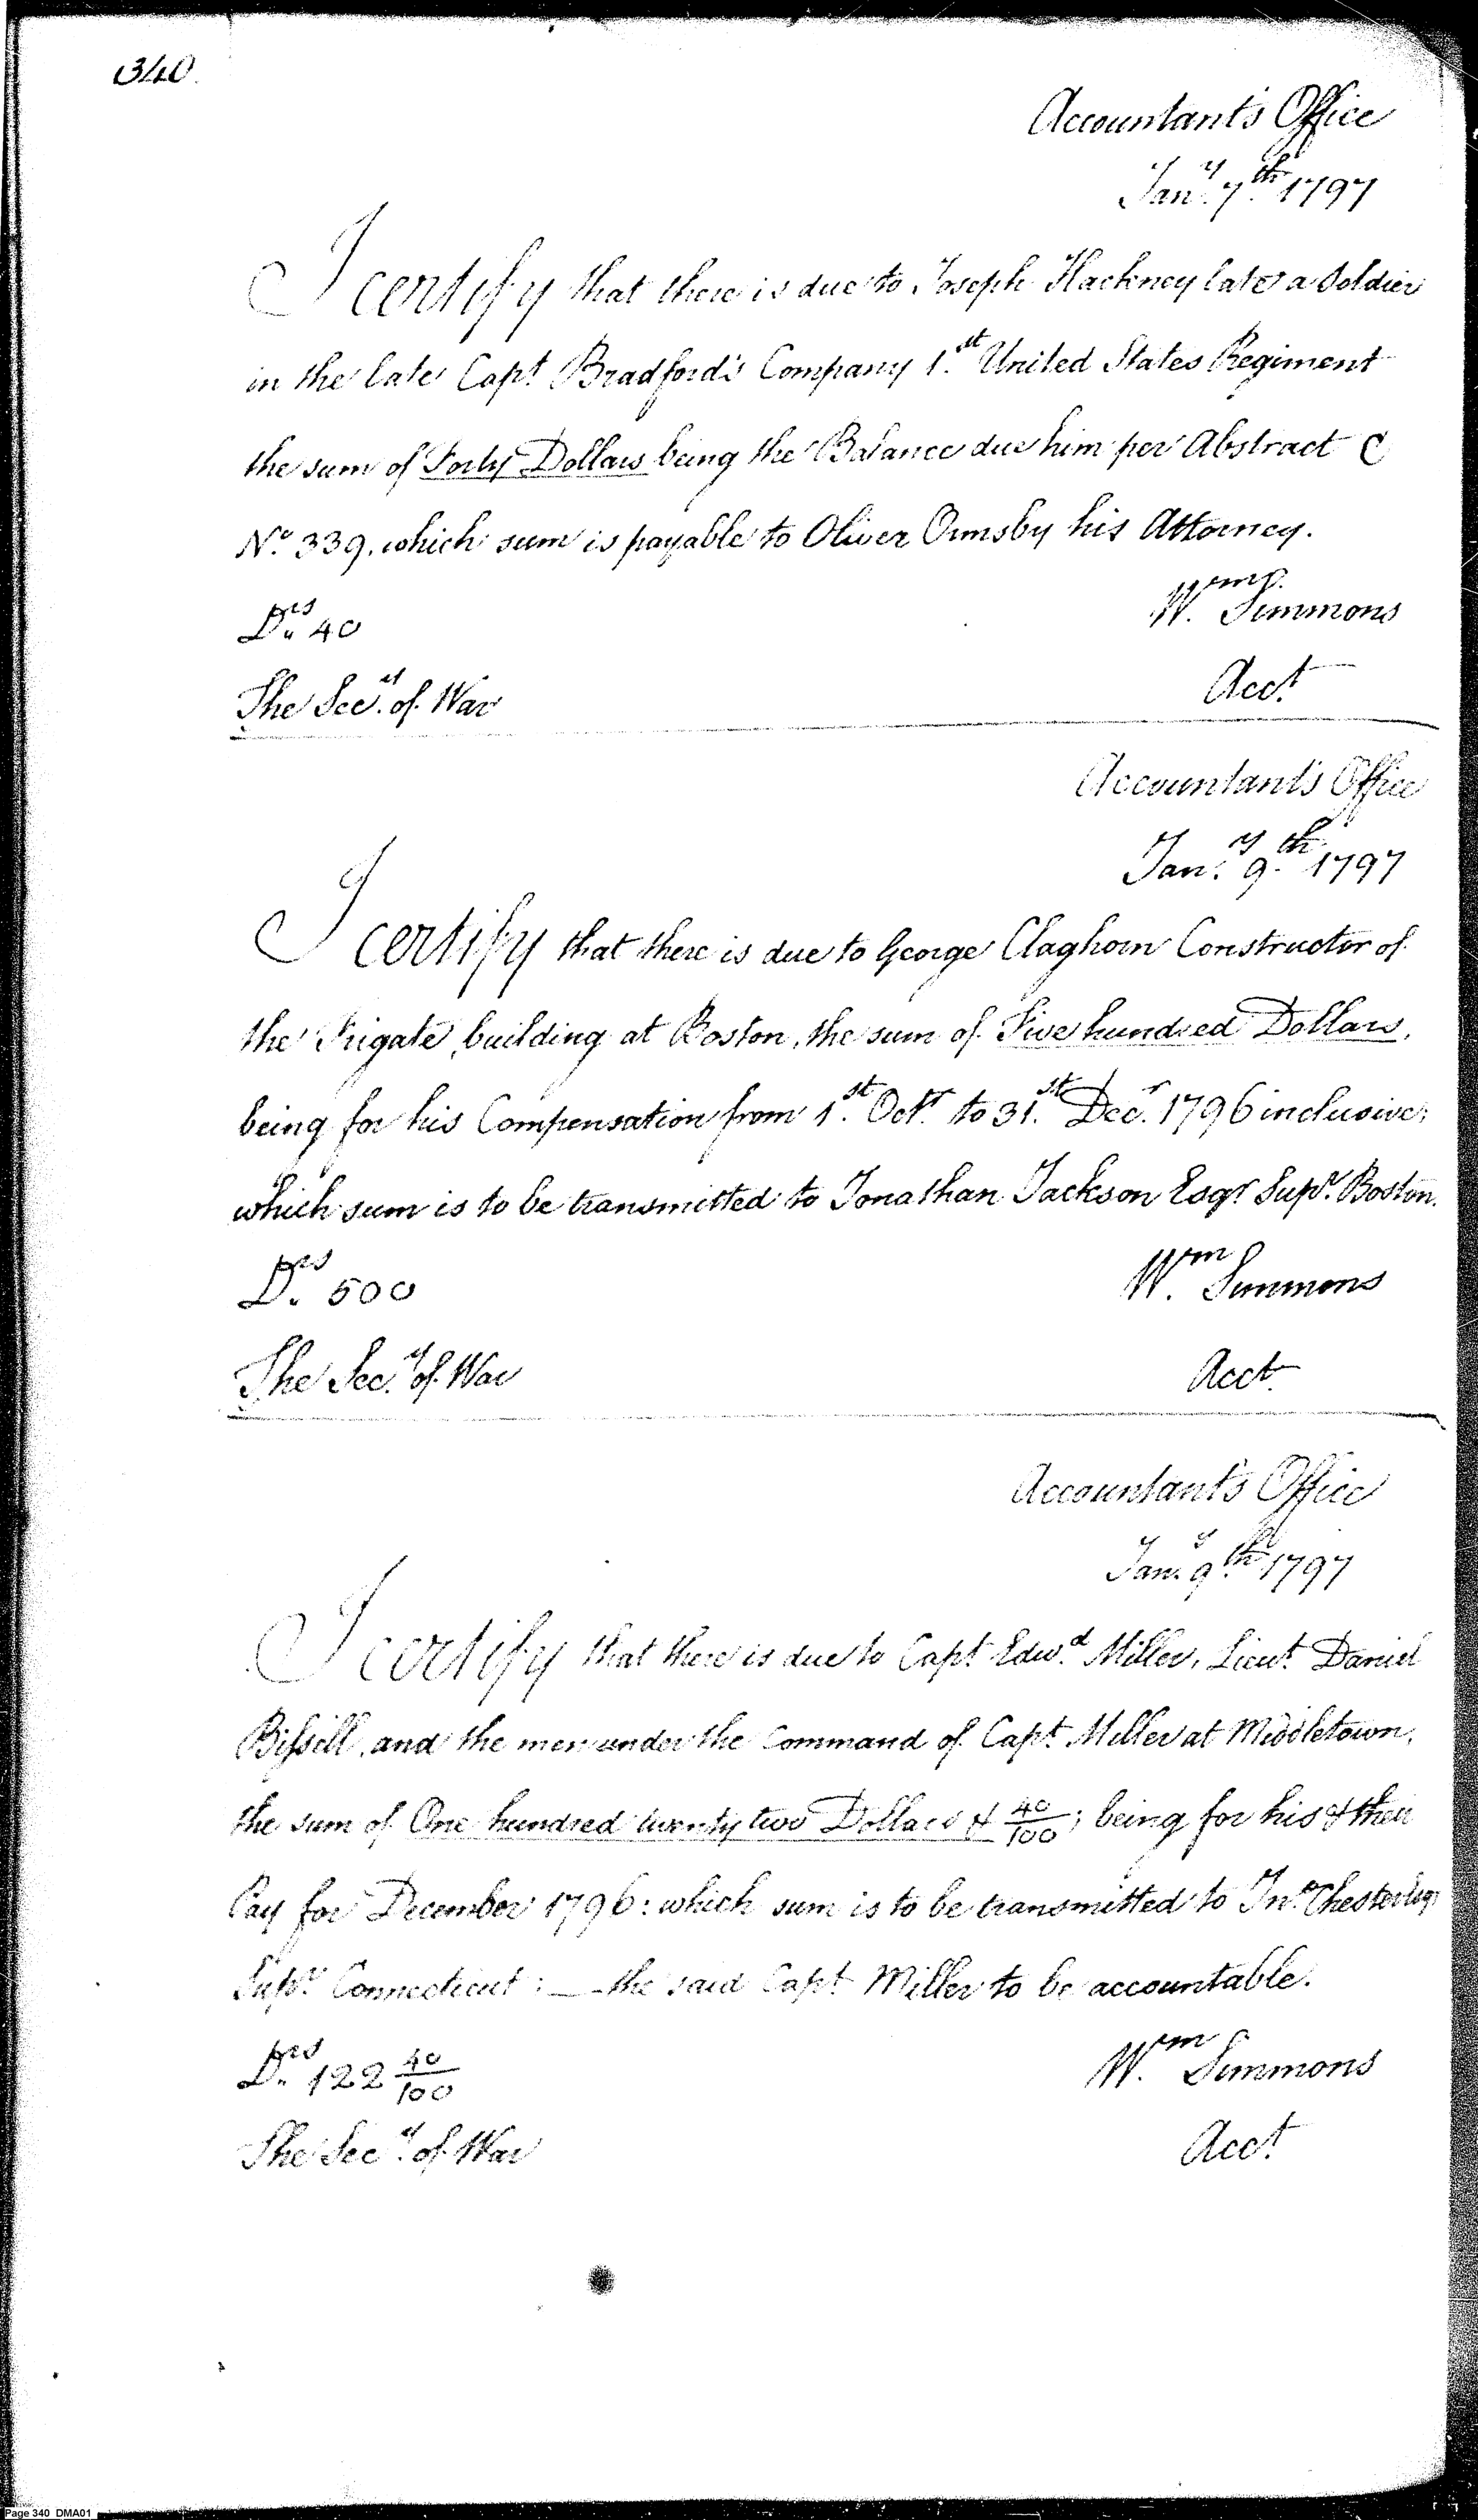 340.
Accountant's Office
Jany. 7th. 1797
I certify that there is due to Joseph Hackney late a Soldier
in the late Capt. Bradford's Company 1st. United States Regiment
the sum of Forty Dollars being the Balance due him per Abstract C
No. 339. which sum is payable to Oliver Ormsby his Attorney.
Wm. Simmons
Drs. 40
Acct.
The Secy. of War
Accountant's Office
Jany. 9th. 1797
I certify that there is due to George Claghorn Constructor of
the Frigate, building at Boston, the sum of Five hundred Dollars,
being for his Compensation from 1st. Octr. to 31st. Decr. 1796 inclusive;
which sum is to be transmitted to Jonathan Jackson Esqr. Supvr. Boston.
Drs. 500
Wm. Simmons
The Secy. of War
Acct.
Accountant's Office
Jany. 9th. 1797
I certify that there is due to Capt. Edwd. Miller, Lieut. Daniel
Bissell, and the men under the Command of Capt. Miller at Middletown,
the sum of One hundred twenty two Dollars & 40/100; being for his & their
Pay for December 1796: which sum is to be transmitted to Jno. Chester Esqr
Supvr. Connecticut: — the said Capt. Miller to be accountable.
Drs. 122 40/100
Wm. Simmons
The Secy. of War
Acct.
Page 340 DMA01